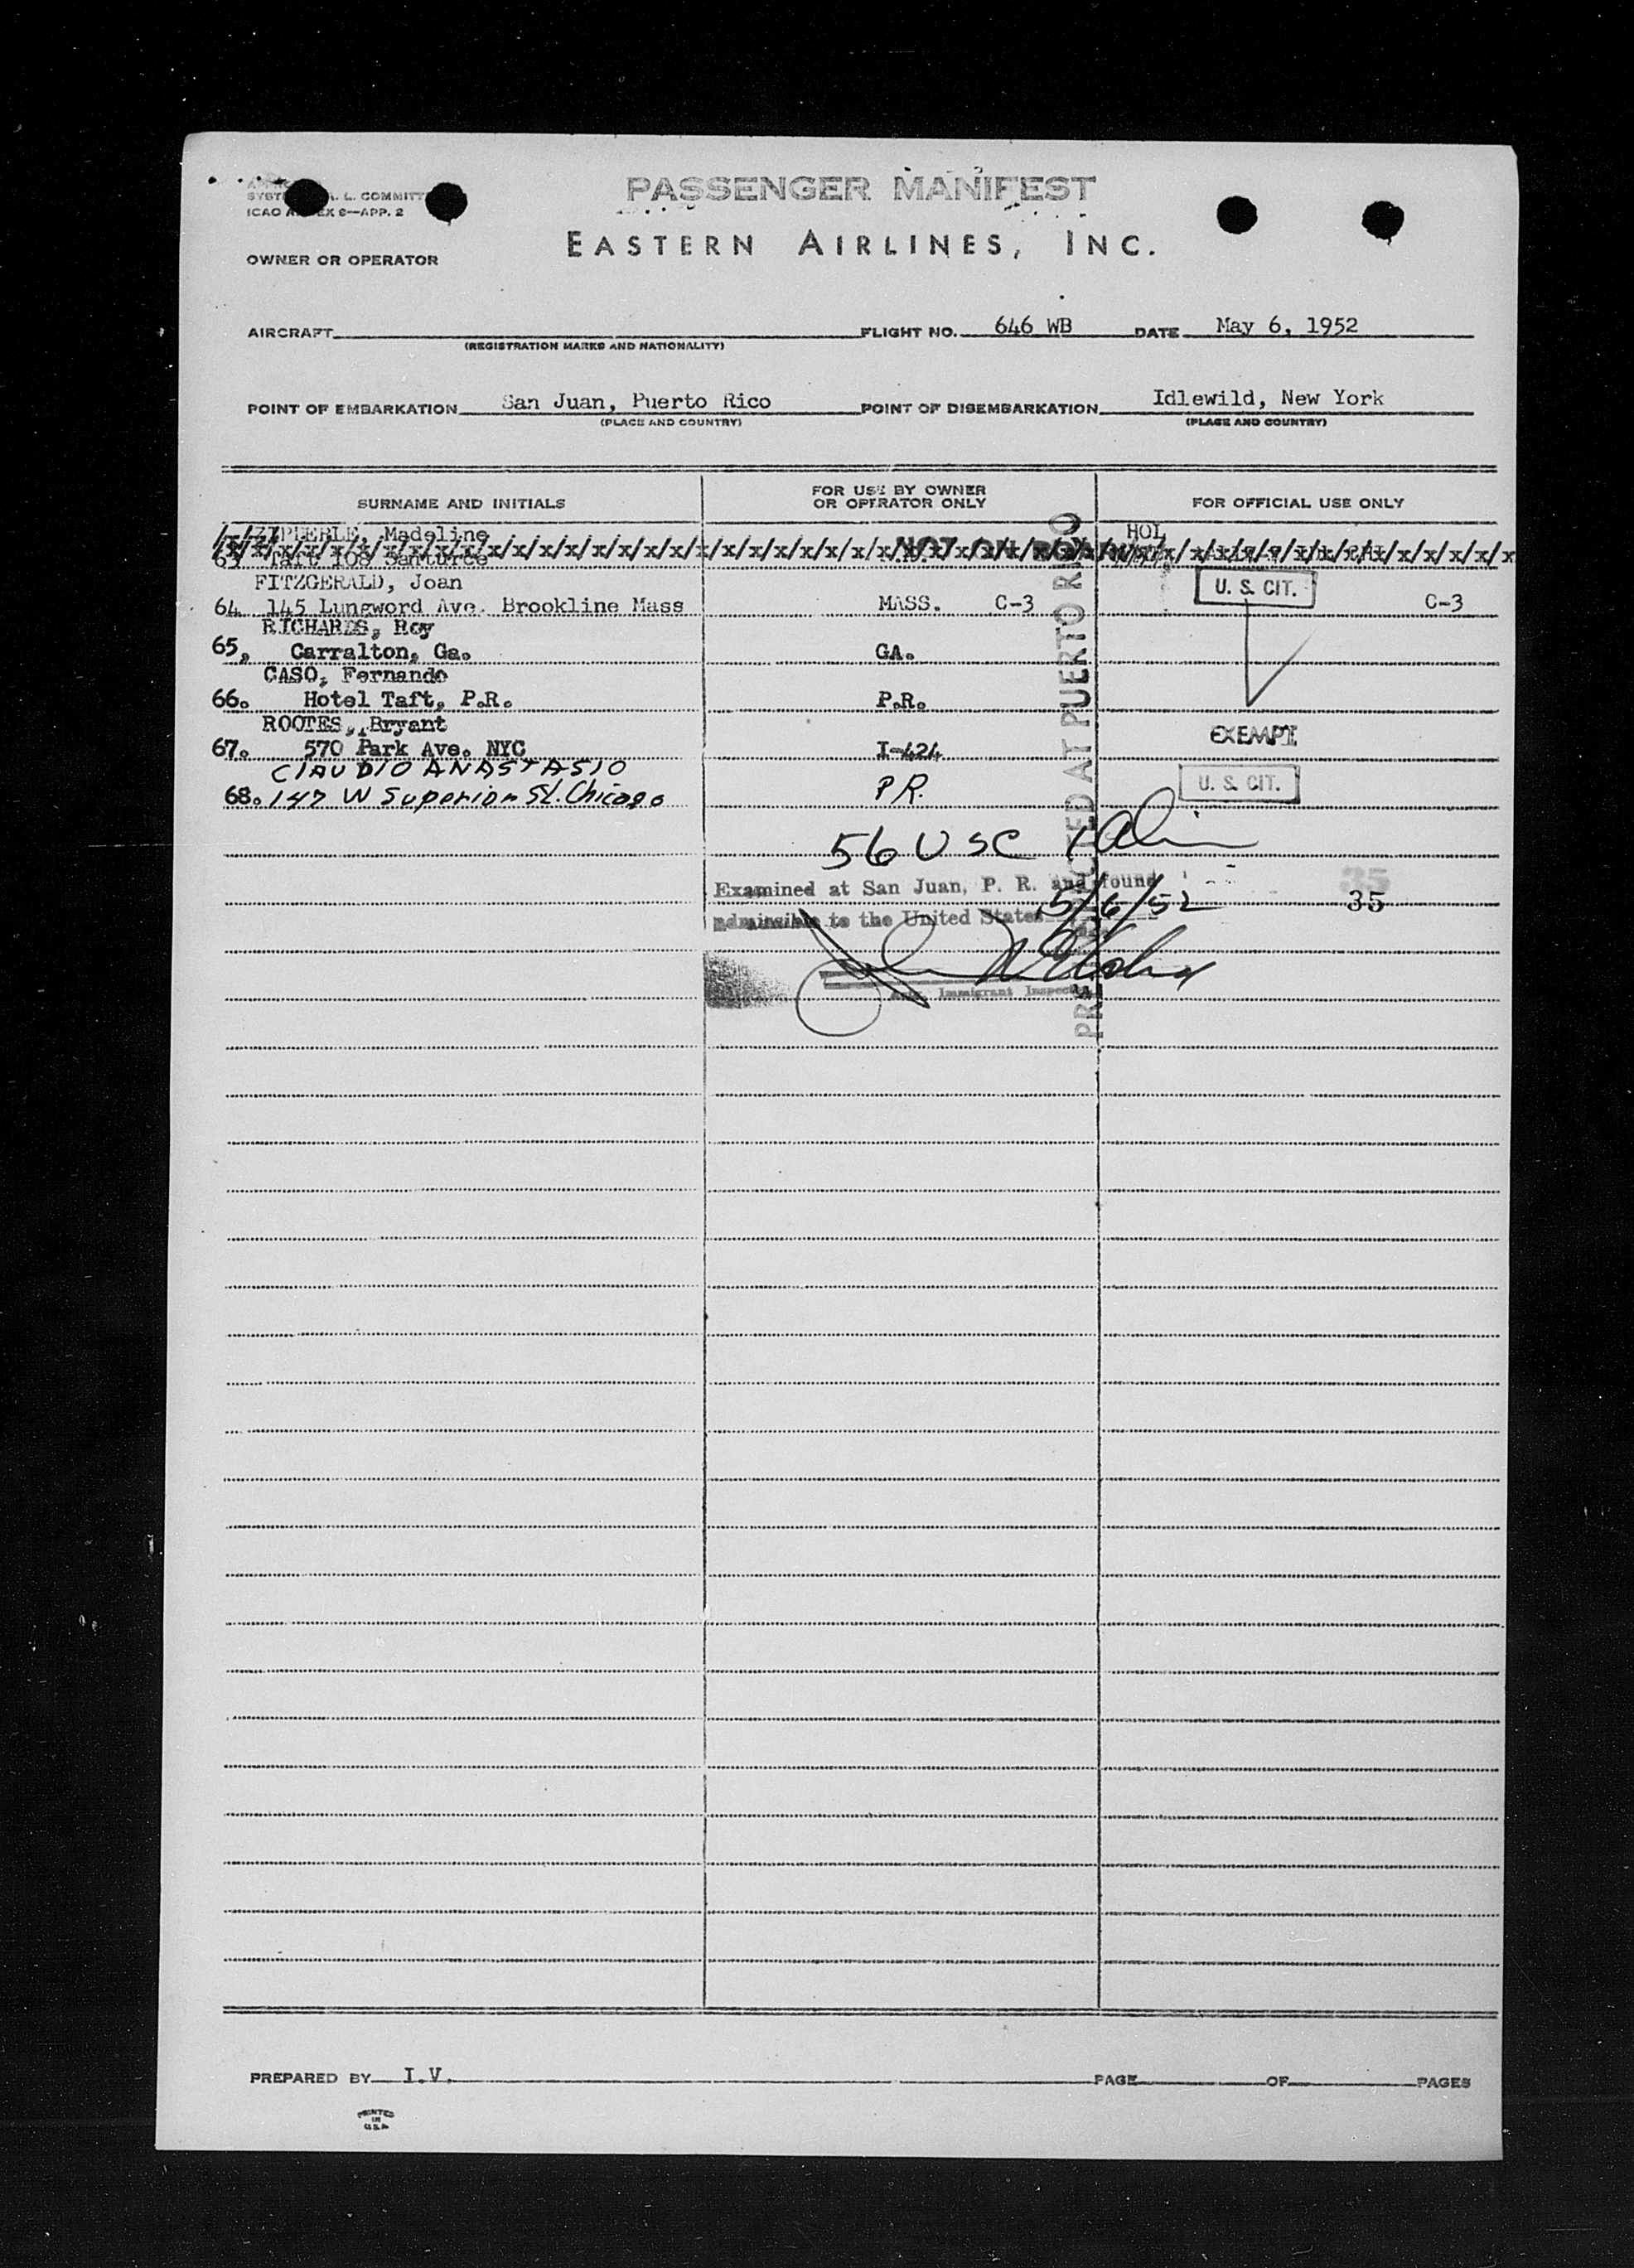 PASSENGER MANIFEST
L. COMMITT
ICAO ANNEX 9—APP. 2
EASTERN AIRLINES, INC.
OWNER OR OPERATOR
AIRCRAFT FLIGHT NO. 646 WB DATE May 6, 1952
(REGISTRATION MARKS AND NATIONALITY)
POINT OF EMBARKATION San Juan, Puerto Rico POINT OF DISEMBARKATION Idlewild, New York
(PLACE AND COUNTRY) (PLACE AND COUNTRY)
SURNAME AND INITIALS FOR USE BY OWNER OR OPERATOR ONLY FOR OFFICIAL USE ONLY
Madeline HOL
NOT ON BOARD
63 Taft 108 Santurce
FITZGERALD, Joan U. S. CIT.
64 145 Lungword Ave. Brookline Mass MASS. C-3 C-3
RICHARDS, Roy
65, Carralton, Ga. GA.
CASO, Fernando
66. Hotel Taft, P.R. P.R.
ROOTES, Bryant EXEMPT
67. 570 Park Ave. NYC I-424
CLAUDIO ANASTASIO U. S. CIT.
68. 147 W Superior St. Chicago P.R.
56 USC 1 Alin
Examined at San Juan, P. R. and found
admissible to the United States 5/6/52
35
Immigrant Inspector
PUERTO RICO
PREPARED BY I.V. PAGE OF PAGES
PRINTED
IN
U.S.A.